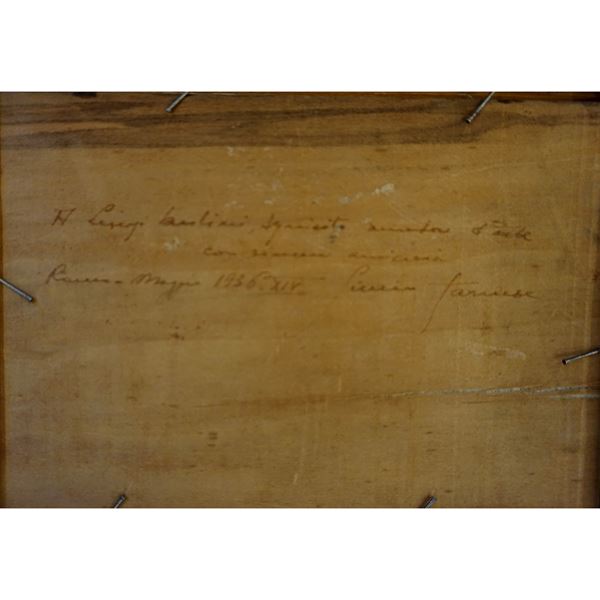 A Luigi squisito amatore d'arte
con sincera amicizia
Roma - Maggio 1936. XIV